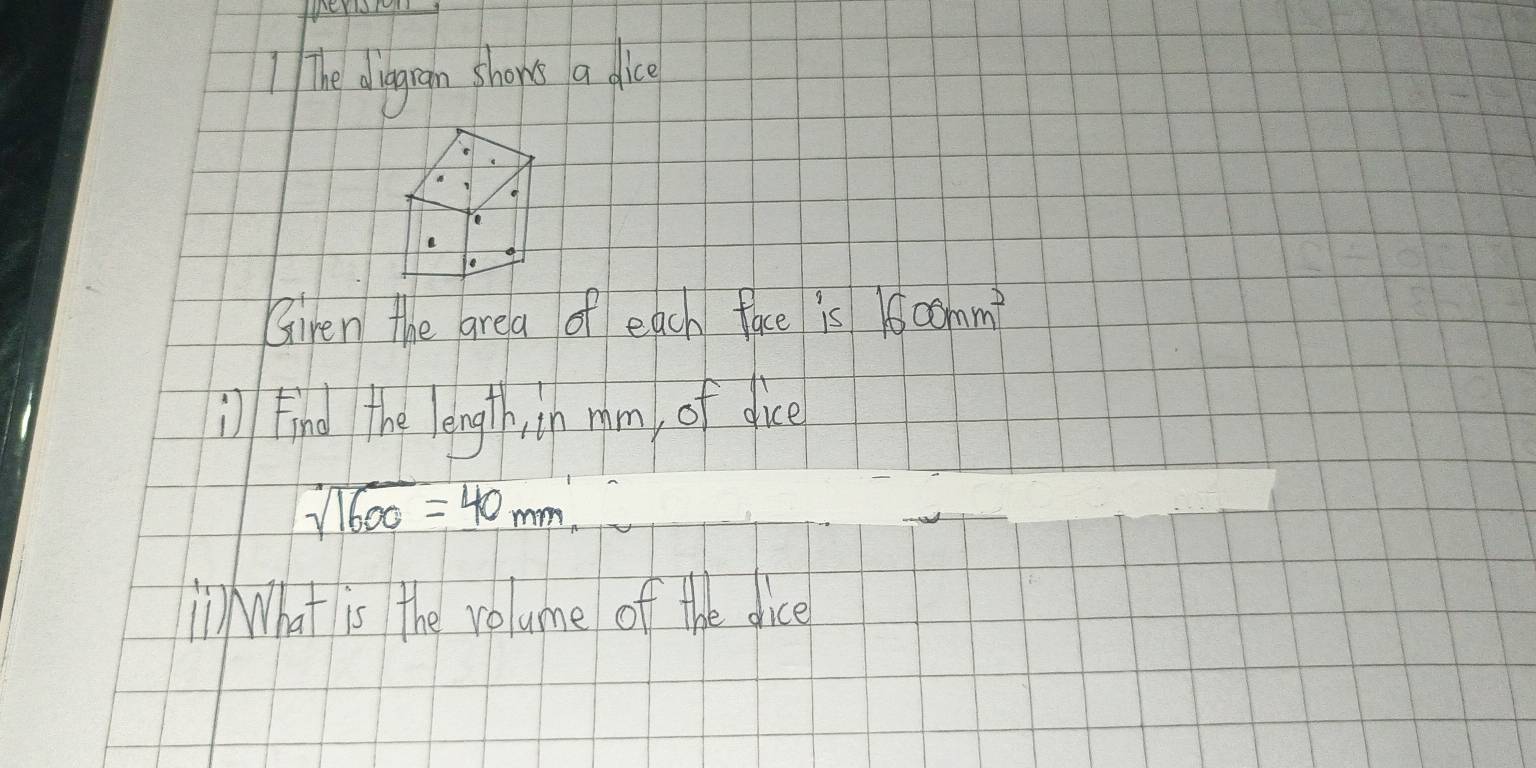 Revision.
1 The diagram shows a dice
Given the area of each face is 1600mm²
i) Find the length, in mm, of dice
√1600 = 40 mm.
ii) What is the volume of the dice